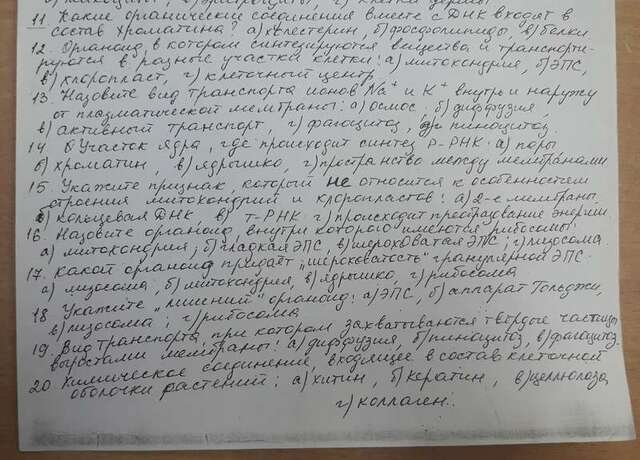 г) клетки дермы
11 Какие органические соединения вместе с ДНК входят в
состав хроматина? а) холестерин, б) фосфолипиды, в) белки.
12. Органоид, в котором синтезируются вещества и транспорти-
руются в разные участки клетки: а) митохондрия, б) ЭПС,
в) хлоропласт, г) клеточный центр,
13. Назовите вид транспорта ионов Na+ и K+ внутрь и наружу
от плазматической мембраны: а) осмос, б) диффузия,
в) активный транспорт, г) фагоцитоз, д) пиноцитоз.
14. Участок ядра, где происходит синтез р-РНК: а) поры
б) хроматин, в) ядрышко, г) пространство между мембранами
15. Укажите признак, который не относится к особенностям
строения митохондрий и хлоропластов: а) 2-е мембраны
б) кольцевая ДНК, в) т-РНК г) происходит преобразование энергии
16. Назовите органоид, внутри которого имеются рибосомы:
а) митохондрия, б) гладкая ЭПС, в) шероховатая ЭПС, г) лизосома.
17. Какой органоид придаёт "шероховатость" гранулярной ЭПС:
а) лизосома, б) митохондрия, в) ядрышко, г) рибосома
18 Укажите "лишний" органоид: а) ЭПС, б) аппарат Гольджи,
в) лизосома; г) рибосома
19. Вид транспорта, при котором захватываются твёрдые частицы
выростами мембраны: а) диффузия, б) пиноцитоз, в) фагоцитоз.
20 Химическое соединение, входящее в состав клеточной
оболочки растений: а) хитин, б) кератин, в) целлюлоза
г) коллаген.